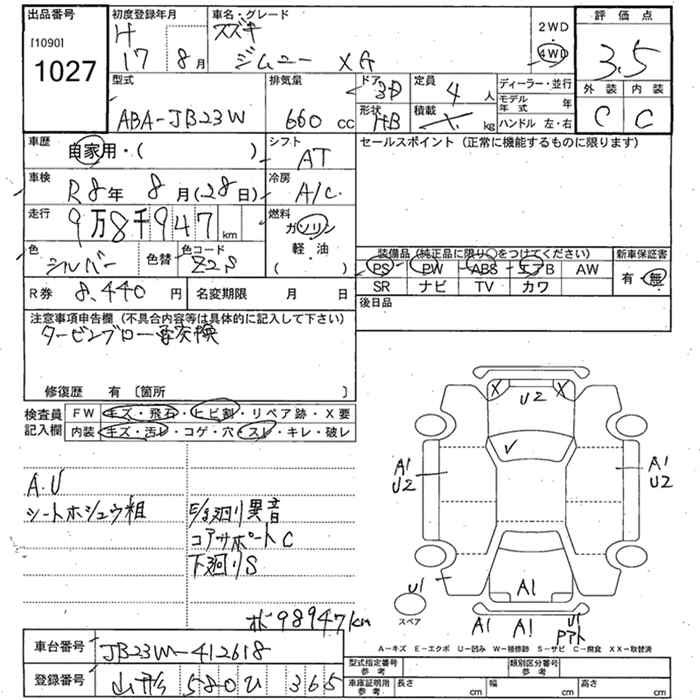 出品番号
[1090]
1027
初度登録年月
H
17 8月
車名・グレード
スズキ
ジムニー XA
2WD
4WD
評価点
3.5
外装 内装
C C
型式
ABA-JB23W
排気量
660 cc
ドア
3D
形状
HB
定員
4 人
積載
kg
ディーラー・並行
モデル年式 年
ハンドル 左・右
車歴
自家用・( )
シフト
AT
セールスポイント（正常に機能するものに限ります）
車検
R8年 8月(28日)
冷房
A/C
走行
9万8千947km
燃料
ガソリン
軽・油
( )
色
シルバー
色替
色コード
Z2S
装備品（純正品に限り○をつけてください）
PS PW ABS エアB AW
SR ナビ TV カワ
新車保証書
有・無
R券 8,440円
名変期限 月 日
後日品
注意事項申告欄（不具合内容等は具体的に記入して下さい）
タービンブロー要交換
修復歴 有〔箇所 〕
検査員記入欄
FW キズ・飛石・ヒビ割・リペア跡・X要
内装 キズ・汚レ・コゲ・穴・スレ・キレ・破レ
A.U
シートホシュウ粗
E/g廻り異音
コアサポートC
下廻りS
ﾒｰﾀ 98947km
X X
U2
✓
A1
U2
A1
U2
U1
A1
スペア
A1 A1 U1
Pアト
A－キズ E－エクボ U－凹み W－補修跡 S－サビ C－腐食 XX－取替済
車台番号
JB23W-412618
登録番号
山形 580 ひ 365
型式指定番号
参考
類別区分番号
参考
車庫証明用
参考
長さ cm
幅 cm
高さ cm